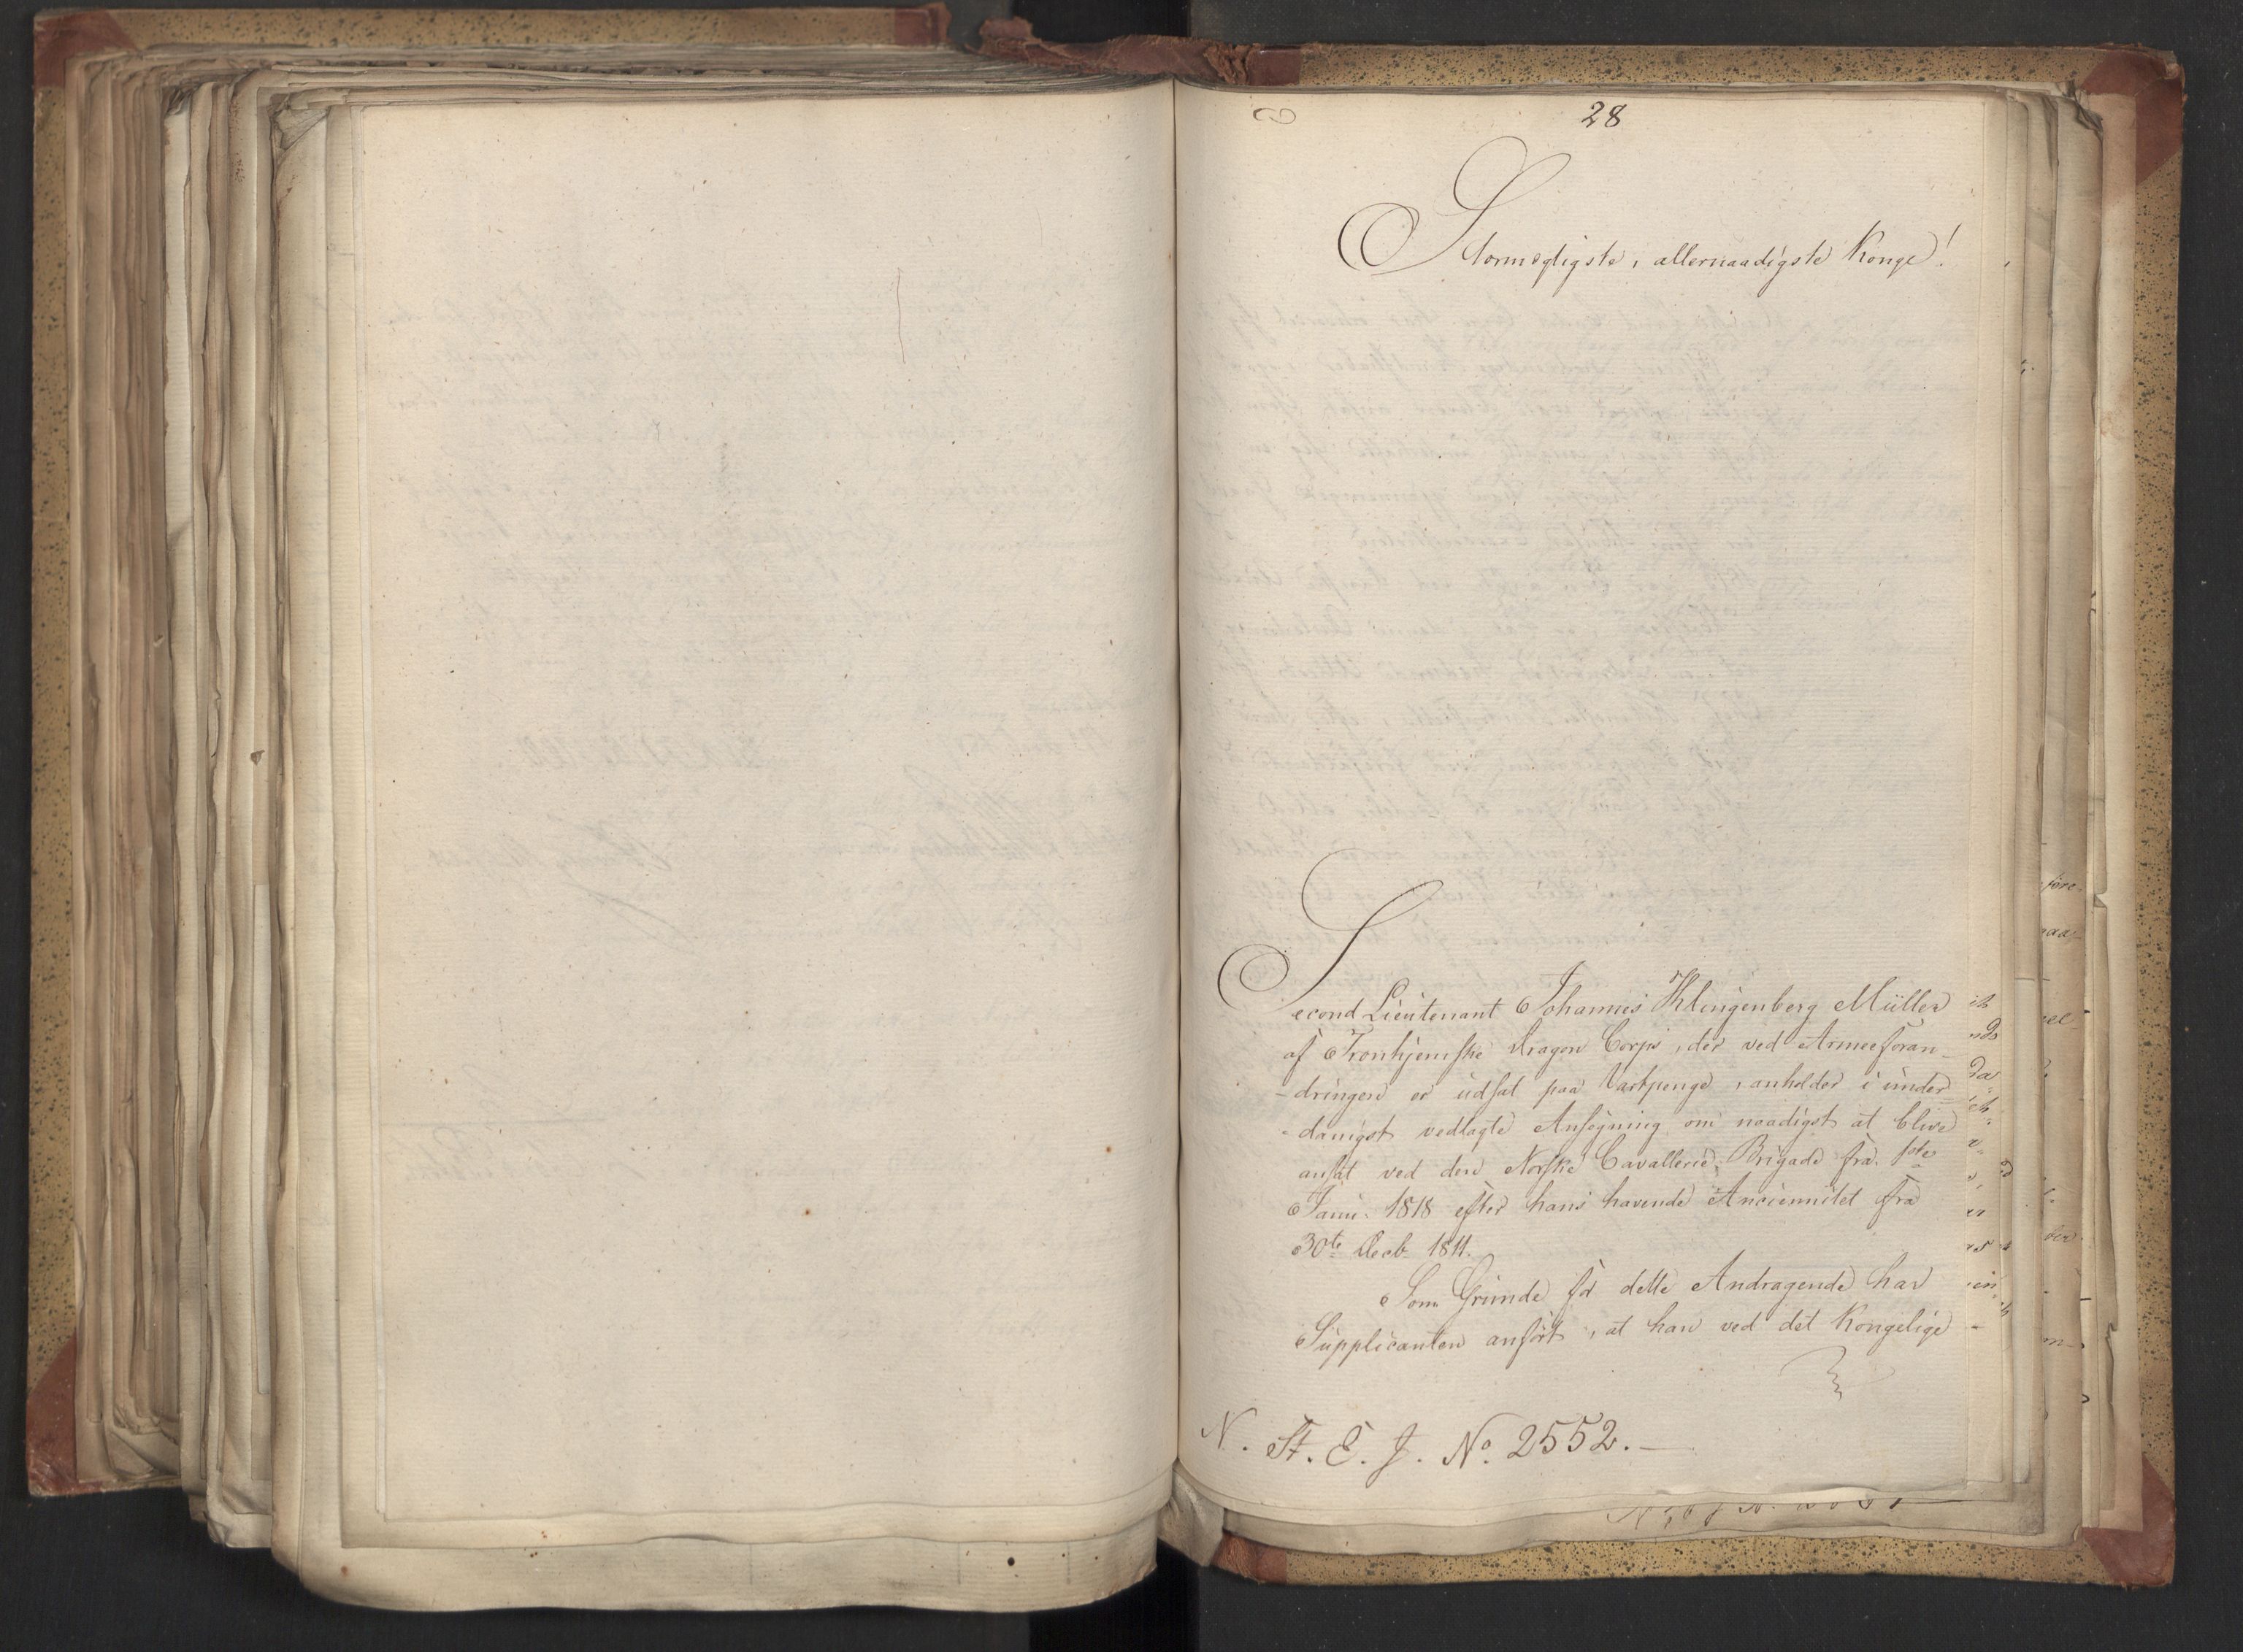 28
Stormegtigste, allernaadigste Konge!
Second Lieutenant Johannes Klingenberg Müller
af Tronhjemske Dragon Corps, der ved Armeeforan-
-dringen er udsat paa Vartpenge, anholder i under-
-danigst vedlagte Ansøgning om naadigst at blive
ansat ved den Norske Cavallerie, Brigade fra 1ste
Janu. 1818 efter hans havende Anciennitet fra
30te Decb 1811.
Som Grunde for dette Andragende har
Supplicanten anført, at han ved det Kongelige
N. St. E. J. No. 2552.